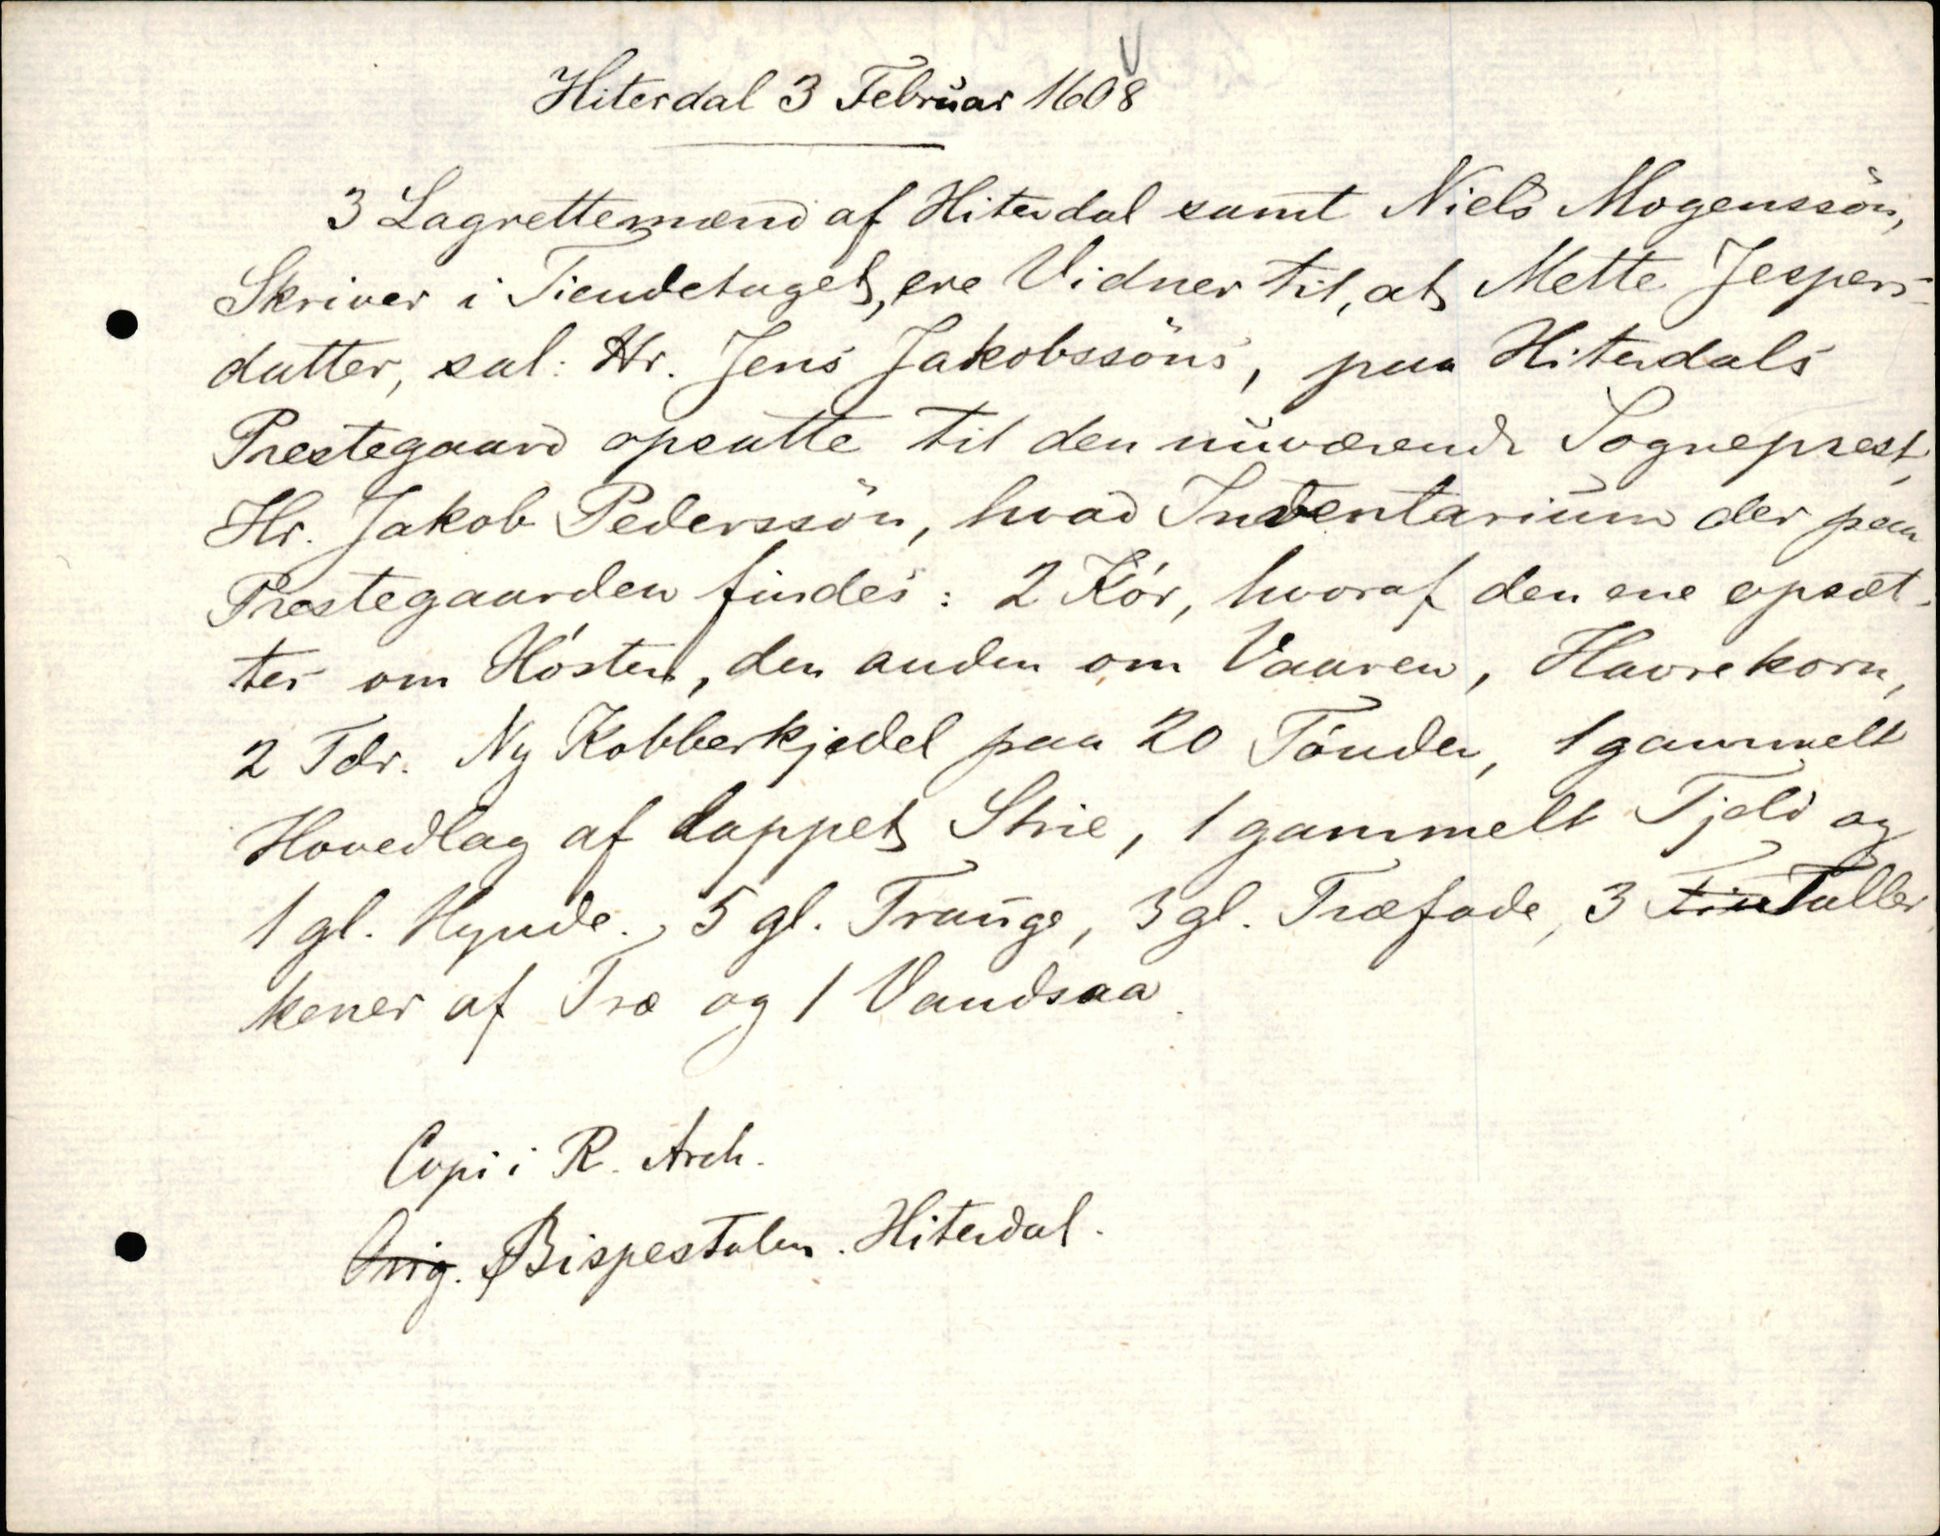 Hiterdal 3 Februar 1608
3 Lagrettemænd af Hiterdal samt Niels Mogenssön,
Skriver i Tiendetaget, ere Vidner til, at Mette Jespers-
datter, sal: Hr. Jens Jakobssöns, paa Hiterdals
Prestegaard opsatte til den nuværende Sogneprest,
Hr. Jakob Pederssön, hvad Inventarium der paa
Prestegaarden findes: 2 Kör, hvoraf den ene opsæt-
tes om Hösten, den anden om Vaaren, Havrekorn,
2 Tdr. Ny Kobberkjedel paa 20 Tönder, 1 gammelt
Hovedlag af lappet Strie, 1 gammelt Tjeld og
1 gl. Hynde. 5 gl. Trauge, 3 gl. Træfade, 3 Tin Taller
kener af Træ og 1 Vandsaa.
Copi i R. Arch.
Orig. Bispestolen. Hiterdal.